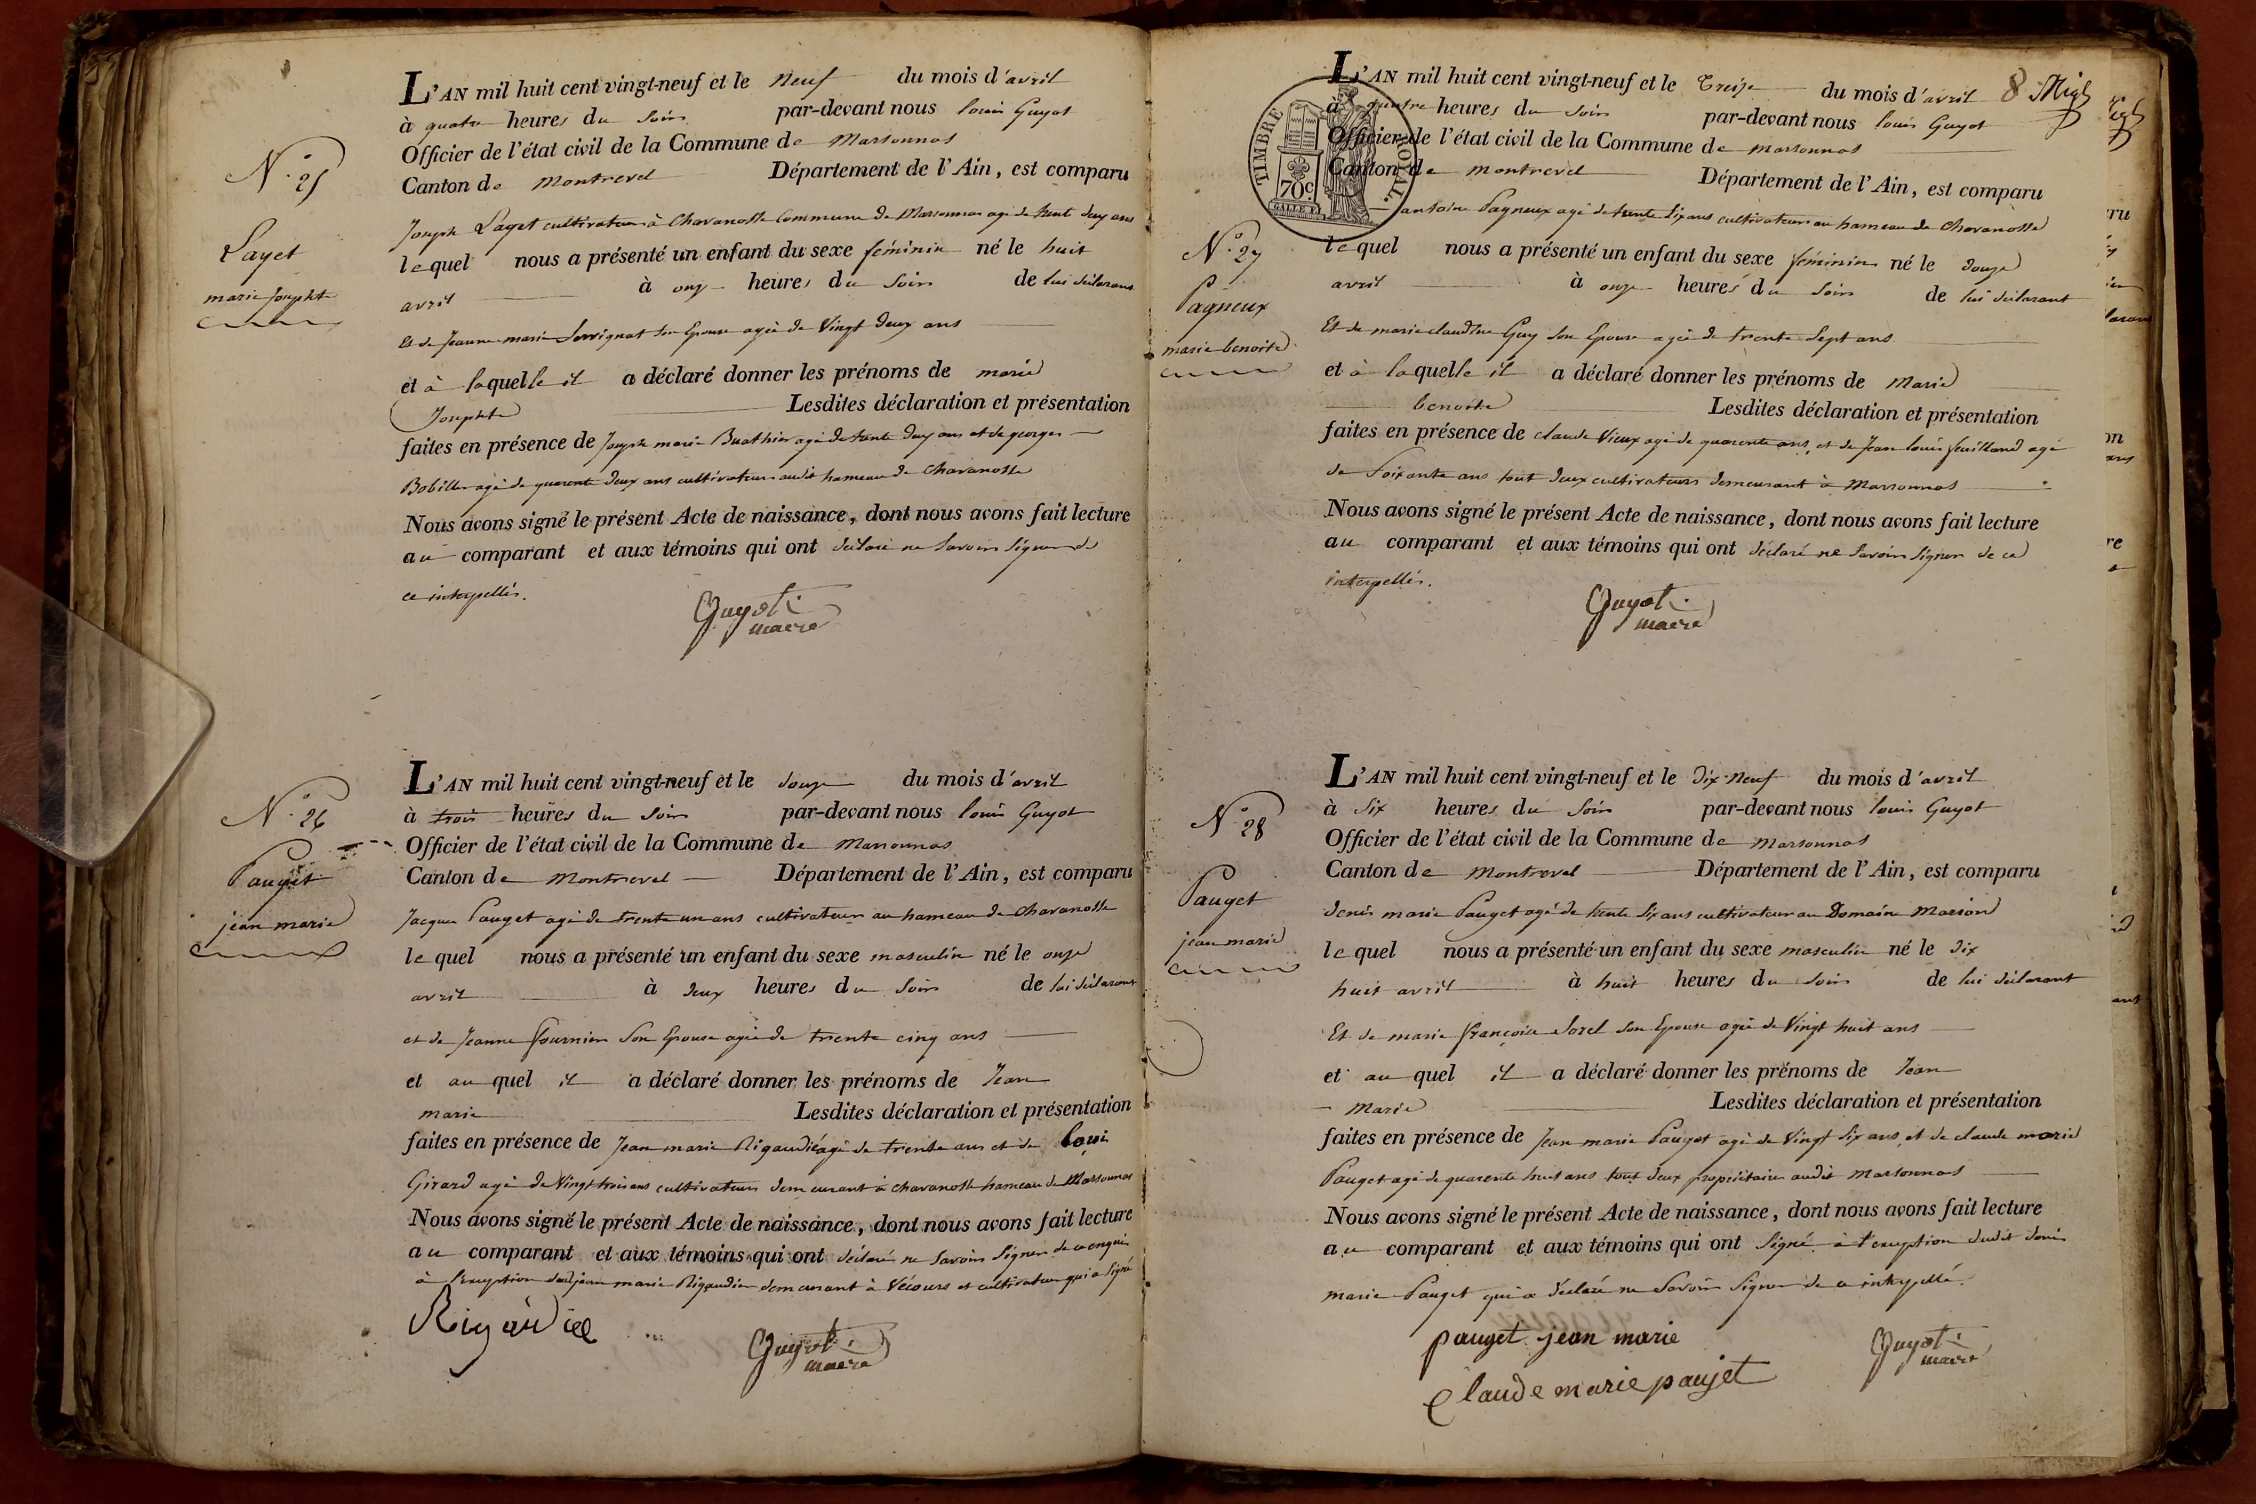 N.° 25
Layet
marie Josephte
L'AN mil huit cent vingt-neuf et le neuf du mois d'avril
à quatre heures du soir par-devant nous louis Guyot
Officier de l'état civil de la Commune de Marsonnas
Canton de Montrevel Département de l'Ain, est comparu
Joseph Layet cultivateur à Chavanosse Commune de Marsonnas agé de trente deux ans
lequel nous a présenté un enfant du sexe féminin né le huit
avril à onze heures du soir de lui déclarant
et de Jeanne marie son Epouse agée de Vingt deux ans
et à laquelle il a déclaré donner les prénoms de marie
Josephte Lesdites déclaration et présentation
faites en présence de Joseph marie Buathier agé de trente deux ans et de georges
Bobillon agé de quarente deux ans cultivateurs audit hameau de Chavanosse
Nous avons signé le présent Acte de naissance, dont nous avons fait lecture
au comparant et aux témoins qui ont déclaré ne Savoir Signer de
ce interpellés.
Guyot
maire
N.° 26
Pauget
jean marie
L'AN mil huit cent vingt-neuf et le douze du mois d'avril
à trois heures du soir par-devant nous louis Guyot
Officier de l'état civil de la Commune de Marsonnas
Canton de Montrevel Département de l'Ain, est comparu
Jacques Pauget agé de trente un ans cultivateur au hameau de Chavanosse
lequel nous a présenté un enfant du sexe masculin né le onze
avril à deux heures du soir de lui déclarant
et de Jeanne fournier Son Epouse agée de triente cinq ans
et au quel il a déclaré donner les prénoms de Jean
marie Lesdites déclaration et présentation
faites en présence de Jean marie Rigaudié agé de trente ans et de loui
Girard agé de Vingt trois ans cultivateurs demeurant à chavanosse hameau de Marsonnas
Nous avons signé le présent Acte de naissance, dont nous avons fait lecture
au comparant et aux témoins qui ont déclaré ne Savoir Signer de ce enquis
à l'exeception dud jean marie Rigaudier demeurant à Vécours et cultivateur qui a Signé
Rigaudiee
Guyot
maire
8
TIMBRE ROYAL.
70c
GALLE F
N.° 27
Pagneux
marie benoite
L'AN mil huit cent vingt-neuf et le Treize du mois d'avril
à quatre heures du soir par-devant nous louis Guyot
Officier de l'état civil de la Commune de marsonnas
Canton de montrevel Département de l'Ain, est comparu
antoine Pagneux agé de trente Six ans cultivateur au hameau de Chavanosse
lequel nous a présenté un enfant du sexe féminin né le douze
avril à onze heures du Soir de lui déclarant
Et de marie claudine Guy Son Epouse agée de trente Sept ans
et à laquelle il a déclaré donner les prénoms de Marie
benoite Lesdites déclaration et présentation
faites en présence de claude Vieux agé de quarente ans, et de Jean louis feuilland agé
de Soixante ans tout deux cultivateurs demeurant à Marsonnas
Nous avons signé le présent Acte de naissance, dont nous avons fait lecture
au comparant et aux témoins qui ont déclaré ne Savoir Signer de ce
interpellés.
Guyot
maire
N.° 28
Pauget
jean marie
L'AN mil huit cent vingt-neuf et le Dix-neuf du mois d'avril
à Six heures du Soir par-devant nous louis Guyot
Officier de l'état civil de la Commune de Marsonnas
Canton de Montrevel Département de l'Ain, est comparu
denis marie Pauget agé de trente Six ans cultivateur au Domaine Marion
lequel nous a présenté un enfant du sexe masculin né le Dix
huit avril à huit heures du Soir de lui déclarant
Et de marie françoise Sorel Son Epouse agée de Vingt huit ans
et au quel il a déclaré donner les prénoms de Jean
Marie Lesdites déclaration et présentation
faites en présence de Jean marie Pauget agé de Vingt Six ans, et de claude marie
Pauget agé de quarente huit ans tout deux propriétaires audit Marsonnas
Nous avons signé le présent Acte de naissance, dont nous avons fait lecture
au comparant et aux témoins qui ont Signé à l'exeuption dudit denis
marie Pauget qui a déclaré ne Savoir Signer de ce interpellé.
pauget jean marie
Claude marie paujet
Guyot
maire